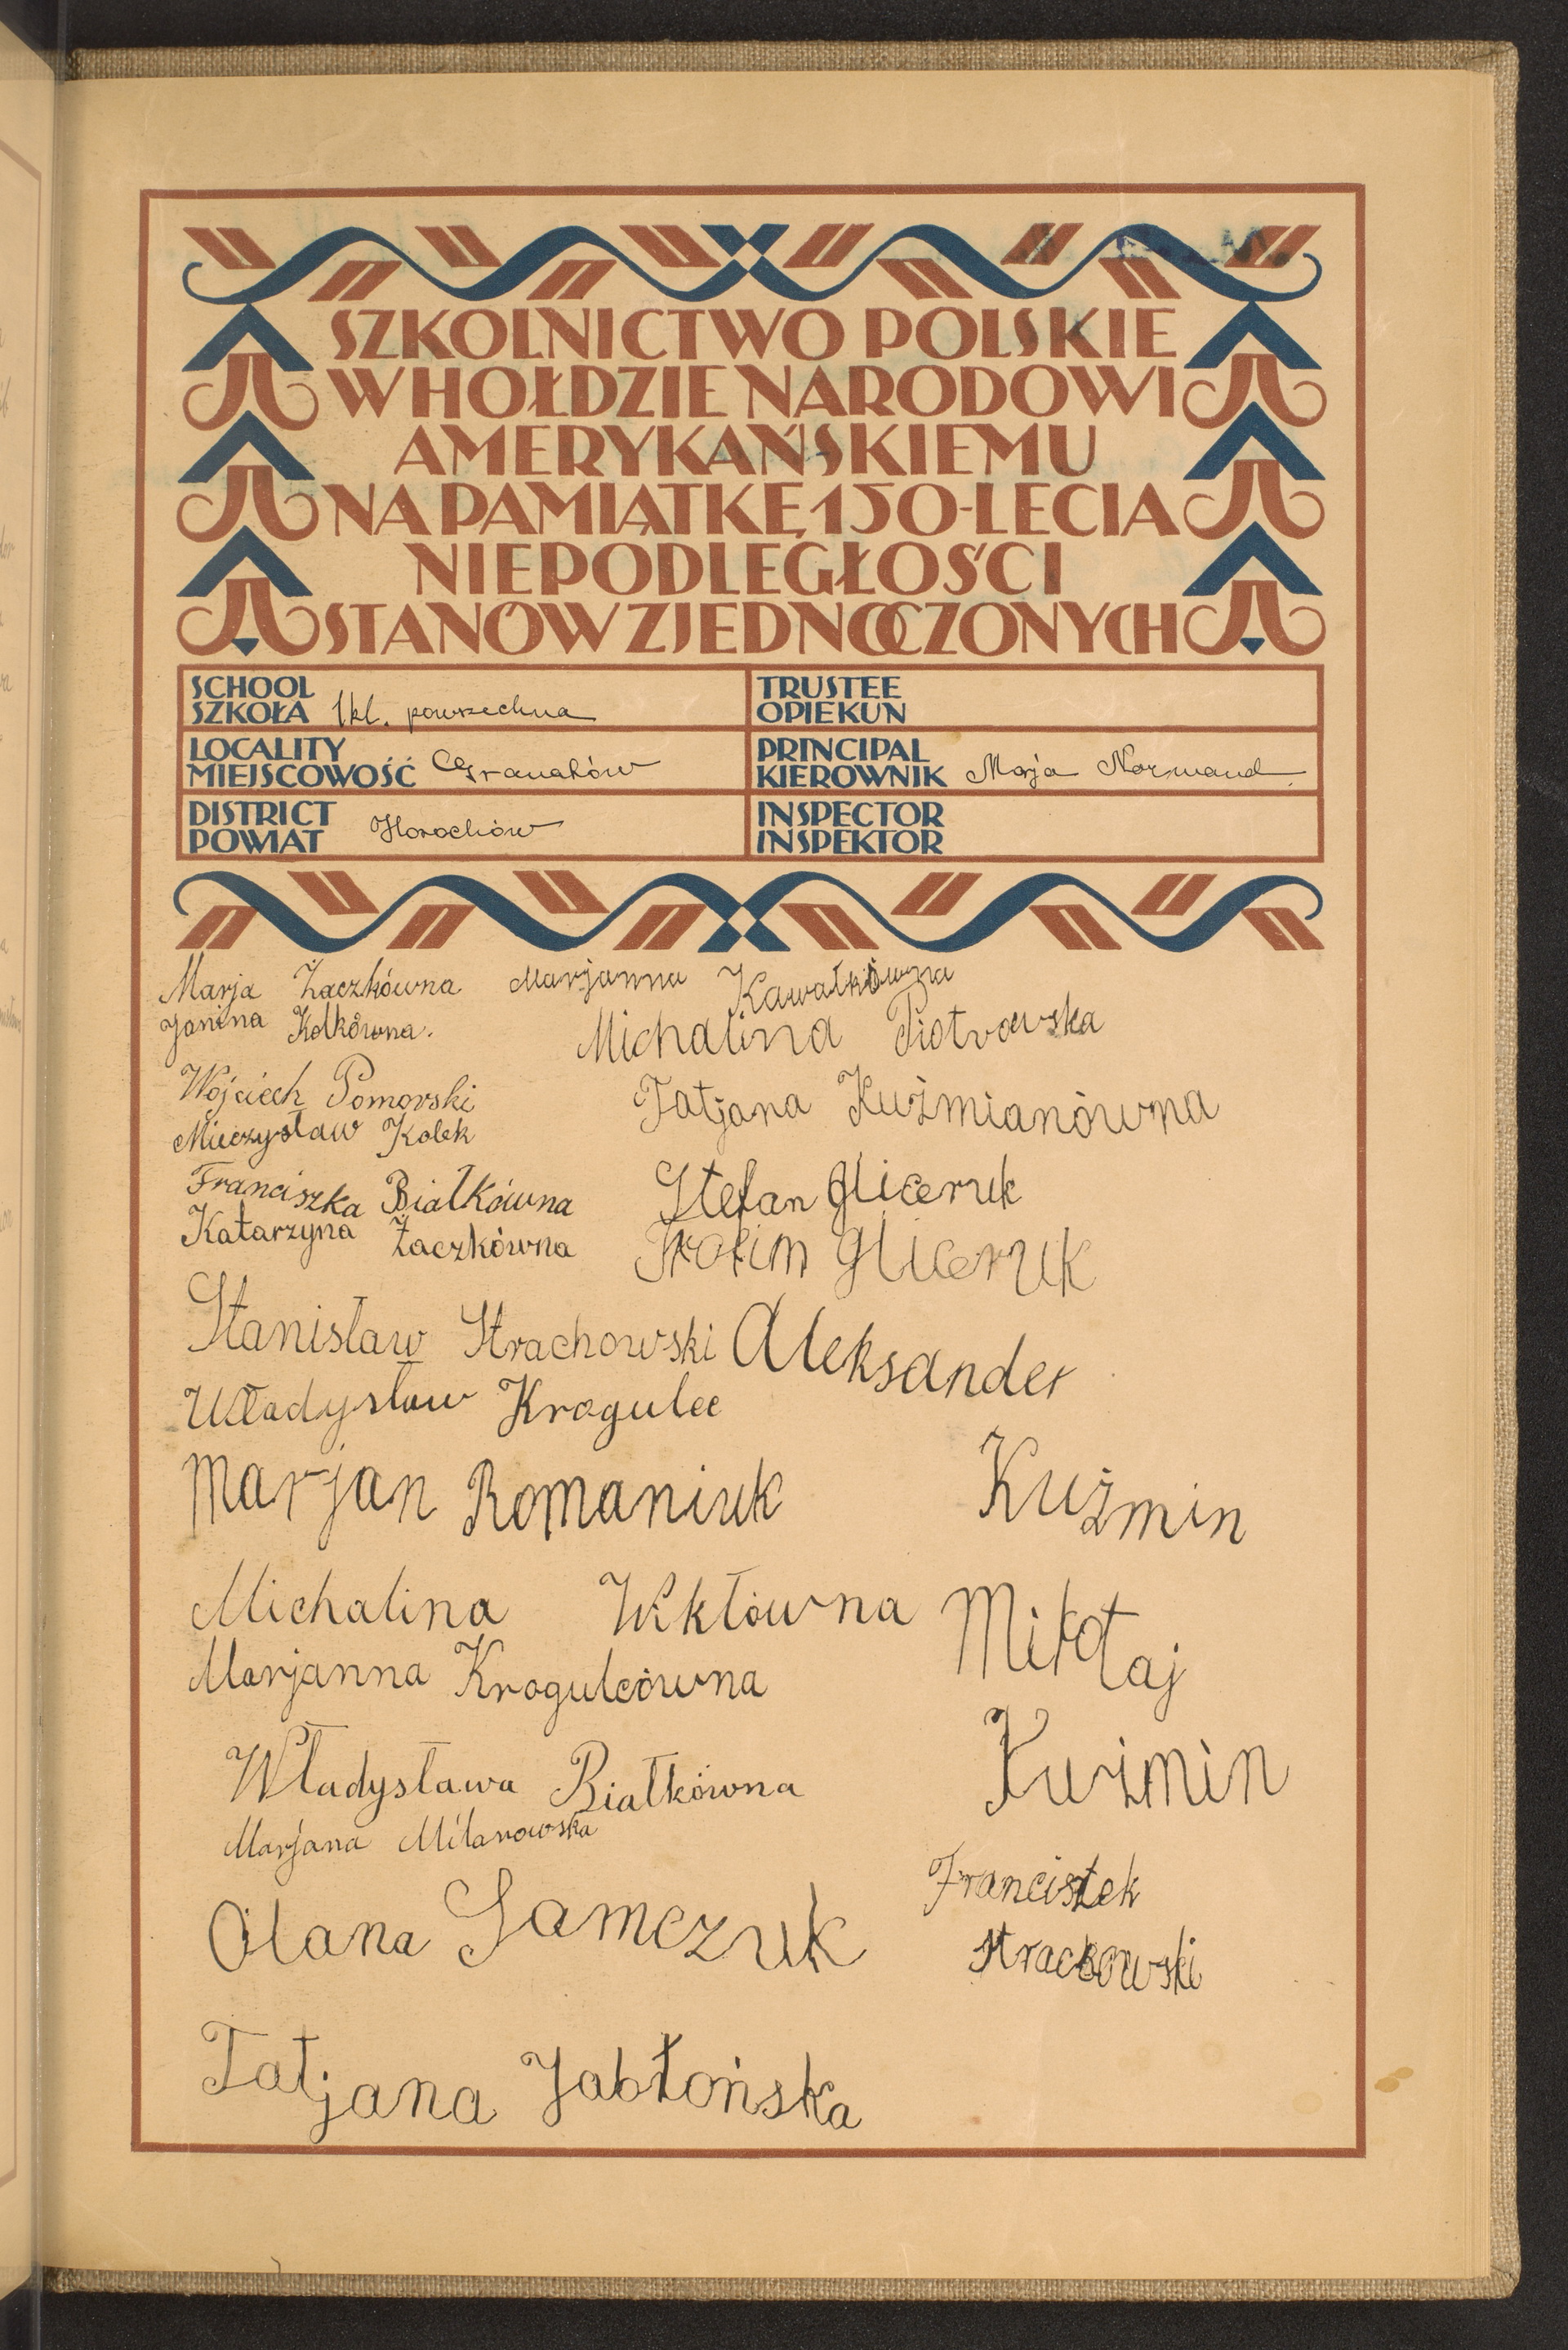 SZKOLNICTWO POLSKIE
W HOŁDZIE NARODOWI
AMERYKAŃSKIEMU
NA PAMIĄTKĘ 150-LECIA
NIEPODLEGŁOŚCI
STANÓW ZJEDNOCZONYCH
SCHOOL
SZKOŁA 1 kl. powszechna
TRUSTEE
OPIEKUN
LOCALITY
MIEJSCOWOŚĆ
PRINCIPAL
KIEROWNIK Marja Normand
DISTRICT
POWIAT Horochów
INSPECTOR
INSPEKTOR
Marja Żaczkówna Marjanna Kawałkówna
Janina Kolkówna.
Michalina Piotrowska
Wojciech Pomorski
Tatjana Kuźmianówna
Mieczysław Kolek
Franciszka Białkówna
Stefan Gliceruk
Katarzyna Żaczkówna
Trofim Gliceruk
Stanisław Strachowski
Aleksander
Władysław Krogulec
Marjan Romaniuk
Kuźmin
Michalina Wikłówna
Mikołaj
Marjanna Krogulcówna
Władysława Białkówna
Kuźmin
Marjana Milanowska
Franciszek
Olana Samczuk
Strachowski
Tatjana Jabłońska